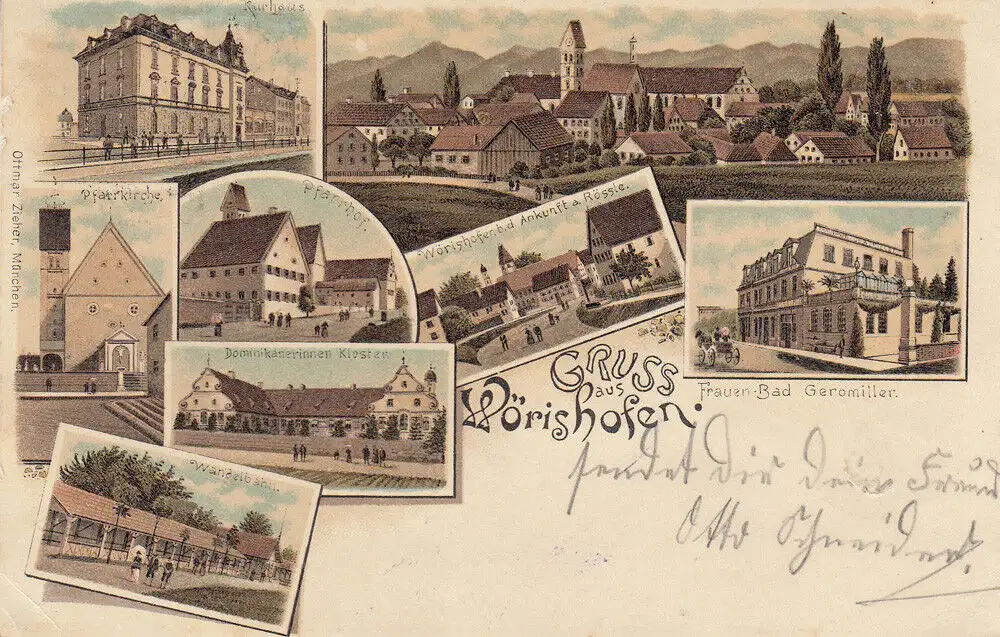 Kurhaus
Pfarrkirche.
Pfarrhof.
Wörishofen b. d. Ankunft a. Rössle.
Dominikanerinnen Kloster.
Frauen-Bad Geromiller.
Wandelbahn.
GRUSS
aus
Wörishofen.
sendet dir dein Freund
Otto Schneider.
Ottmar Zieher, München.